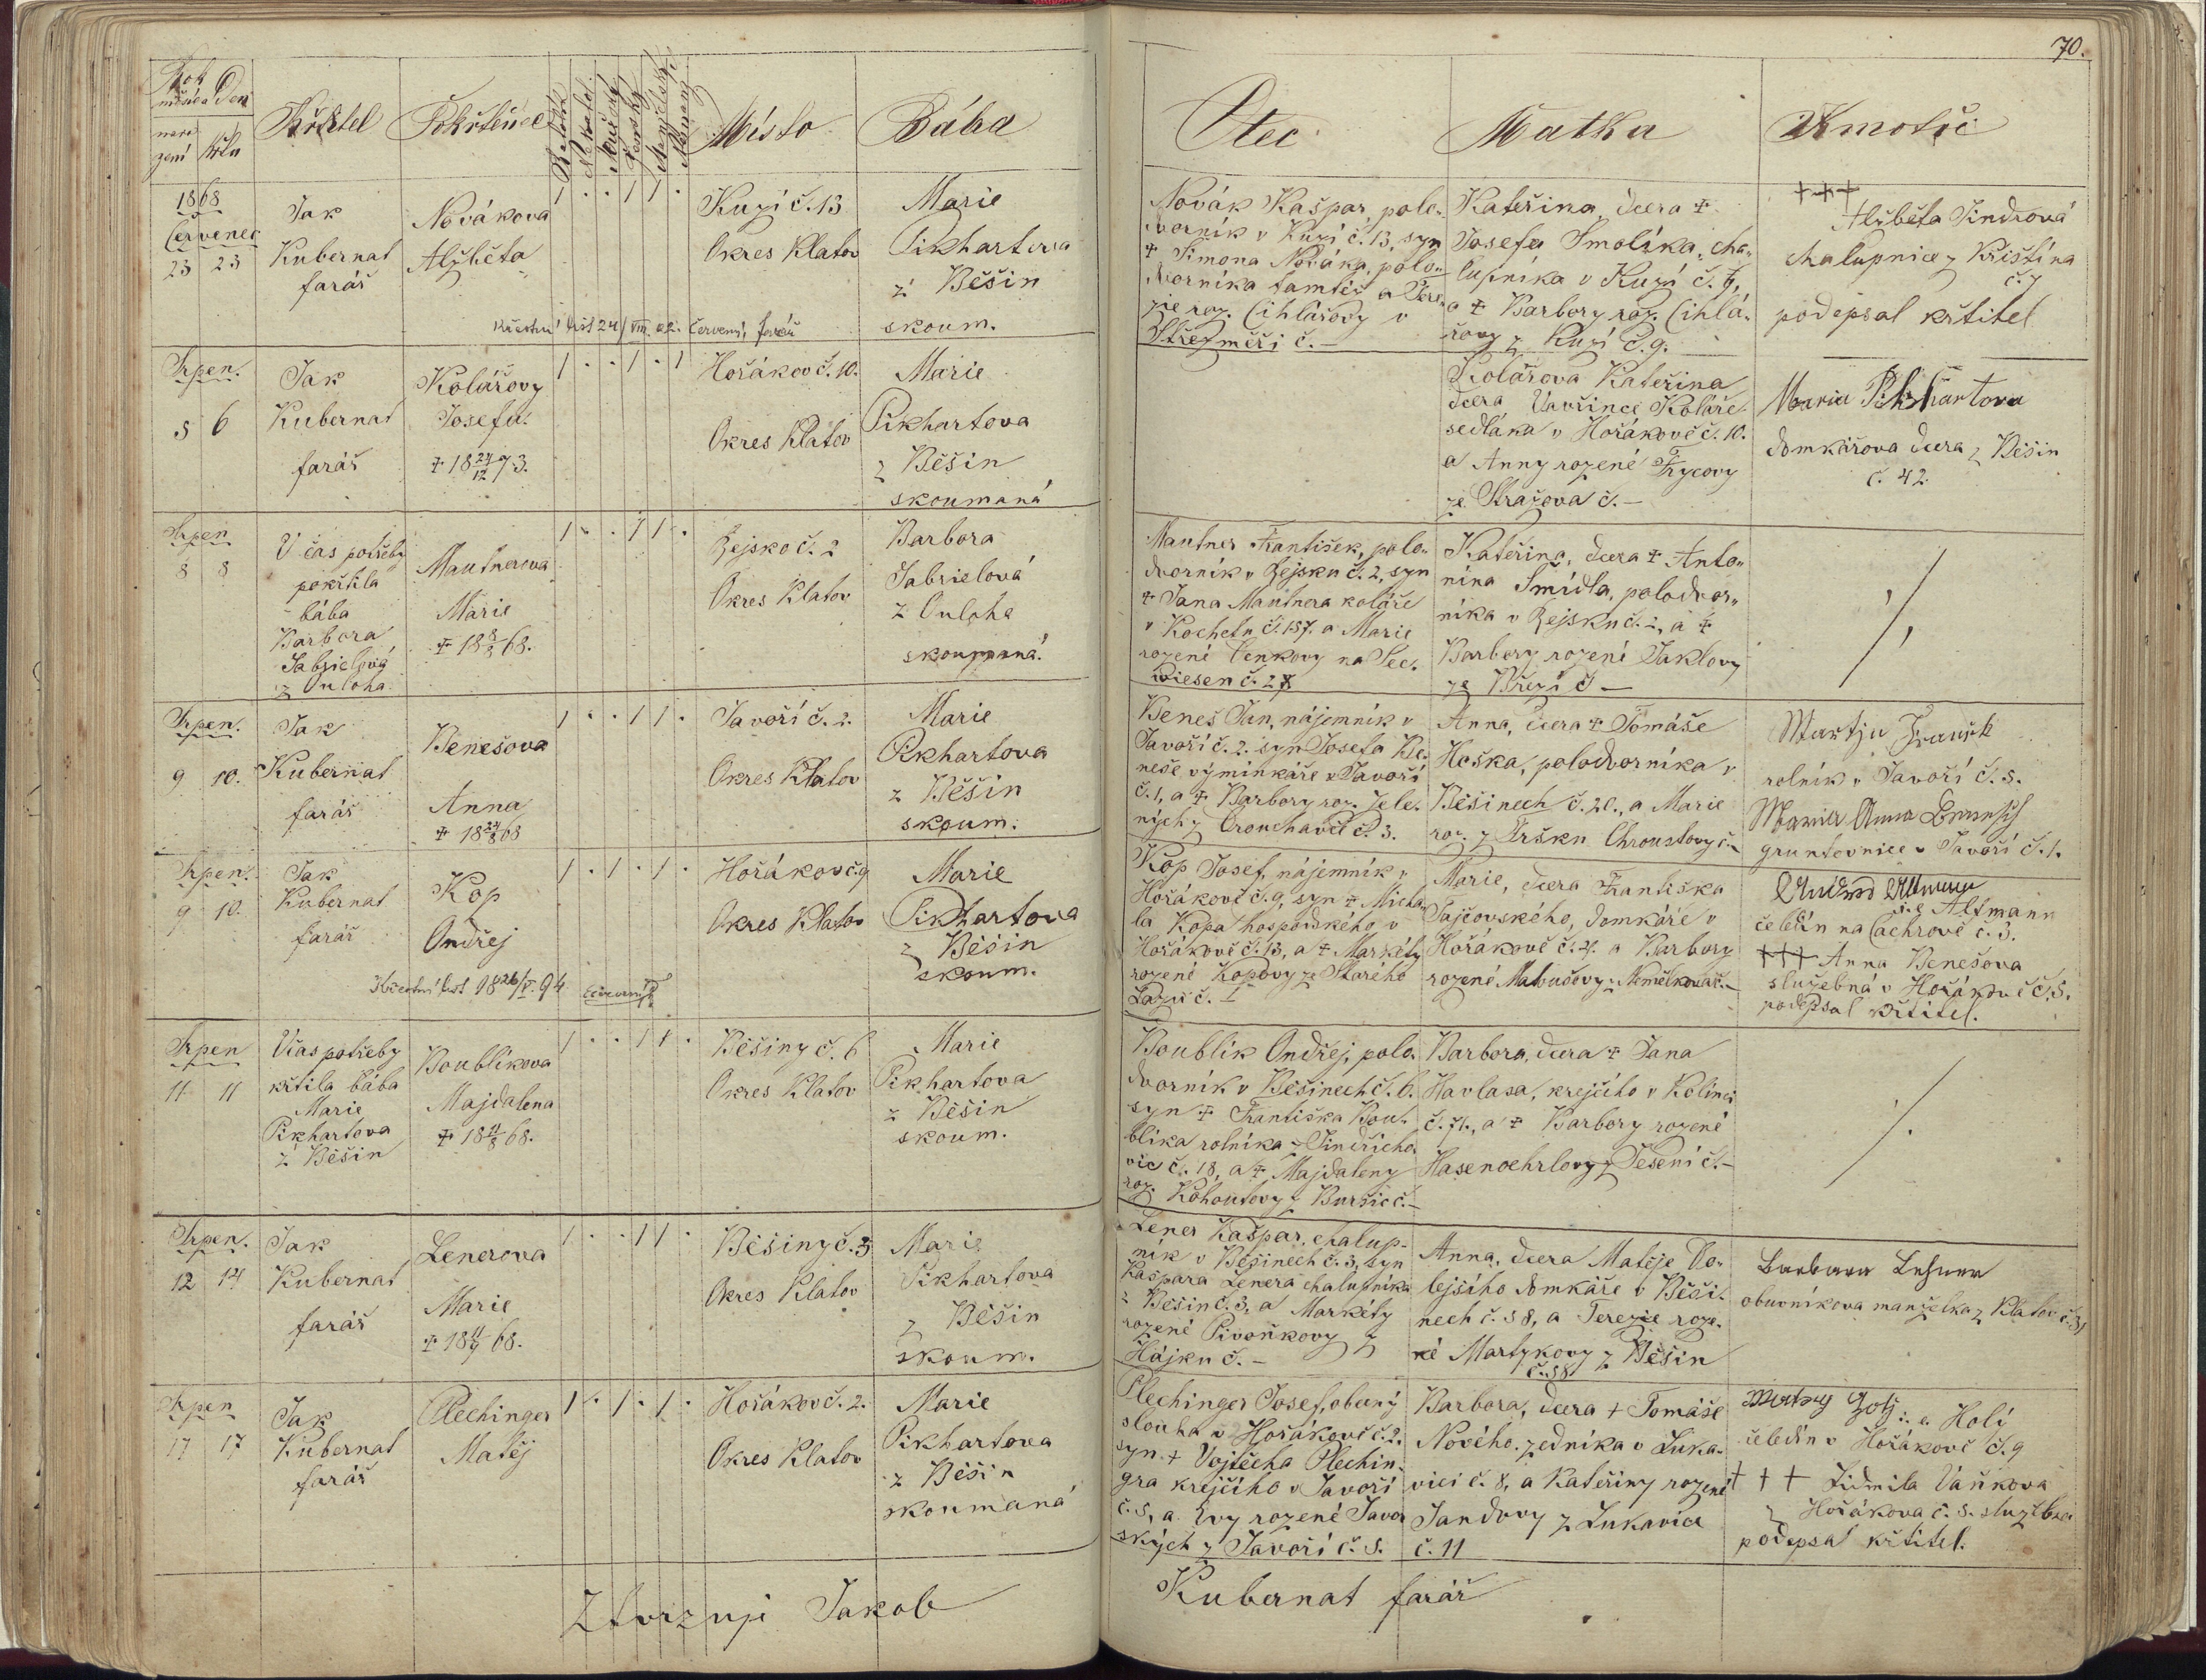 70.
Rok
měsíc a Den
naro
zení
křtu
Křtitel
Pokřtěnec
Místo
Bába
Otec
Matka
Kmotři
1868
Červenec
23 23
Jak
Kubernat
farář
Novákova
Alžběta
1 . . 1 1 .
Kuzí č. 13
Okres Klatov
Marie
Pikhartova
z Běšin
skoum.
Křestní list 24/VIII. 02. Červený, farář
Novák Kašpar, polo-
dvorník v Kuzí č. 13, syn
+ Šimona Nováka, polo-
dvorníka tamtéž a Tere-
zie roz. Cihlářovy v
Střezměři č. —
Kateřina, dcera +
Josefa Smolíka, cha-
lupníka v Kuzí č. 6,
a + Barbory roz. Cihlá-
řovy z Kuzí č. 9.
+++
Alžběta Jindrová
chalupnice z Křištína
č. 7
podepsal křtitel
Srpen.
5 6
Jak
Kubernat
farář
Kolářovy
Josefa
+ 18 24/12 73.
1 . . 1 . 1
Hořákov č. 10.
Okres Klatov
Marie
Pikhartova
z Běšin
skoumaná
Kolářova Kateřina
dcera Vavřince Koláře
sedláka v Hořákově č. 10.
a Anny rozené Frycovy
ze Stražova č. —
Maria Pikhartova
domkářova dcera z Běšin
č. 42
Srpen
8 8
V čas potřeby
pokřtila
bába
Barbora
Gabrielová
z Ouloha
Mautnerova
Marie
+ 18 8/8 68.
1 . . 1 1 .
Zejsko č. 2
Okres Klatov
Barbora
Gabrielová
z Ouloha
skoumaná.
Mautner František, polo-
dvorník v Zejsku č. 2, syn
+ Jana Mautnera koláře
v Kochetu č. 157. a Marie
rozené Cenkovy na See-
wiesen č. 27
Kateřina, dcera + Anto-
nína Šmídla, polodvor-
níka v Zejsku č. 2, a +
Barbory rozené Jaklovy
ze Březí č —
Srpen.
9 10.
Jak
Kubernat
farář
Benešova
Anna
+ 18 24/8 68
1 . . 1 1 .
Javoří č. 2.
Okres Klatov
Marie
Pikhartova
z Běšin
skoum.
Beneš Jan, nájemník v
Javoří č. 2. syn Josefa Be-
neše, výminkáře v Javoří
č. 1, a + Barbory roz. Zele-
ných z Crouchavce č. 3.
Anna, dcera + Tomáše
Hoška, polodvorníka v
Běšinech č. 20., a Marie
roz. z Tršku Chroustovy č. —
rolník v Javoří č. 5.
Maria Anna
gruntovnice v Javoří č. 1.
Srpen.
9 10.
Jak
Kubernat
farář
Kop
Ondřej
Křestní list 18 26/V. 94
1 . 1 . 1 .
Hořákov č. 9
Okres Klatov
Marie
Pikhartova
z Běšin
skoum.
Kop Josef, nájemník v
Hořákově č. 9, syn + Micha-
la Kopa hospodského v
Hořákově č. 13, a + Markéty
rozené Kopovy ze Starého
Lazu č. 1
Marie, dcera Františka
Tajčovského, domkáře v
Hořákově č. 4. a Barbory
rozené Matoušovy z Němčlkova č. —
Altmann
čeledín na Čachrově č. 3.
+++ Anna Benešova
služebná v Hořákově č. 5.
podepsal křtitel.
Srpen
11 11
V čas potřeby
křtila bába
Marie
Pikhartova
z Běšin
Boublíkova
Majdalena
+ 18 11/8 68.
1 . . 1 1 .
Běšiny č. 6
Okres Klatov
Marie
Pikhartova
z Běšin
skoum.
Boublík Ondřej, polo-
dvorník v Běšinech č. 6.
syn + Františka Bou-
blíka rolníka z Jindřicho-
vic č. 18, a + Majdaleny
roz. Kohoutovy z Buršic č. —
Barbora, dcera + Jana
Havlasa, krejčího v Kolinci
č. 71., a + Barbory rozené
Hasenoehrlovy z Jesení č. —
Srpen.
12 14
Jak
Kubernat
farář
Lenerova
Marie
1 . . 1 1 .
Běšiny č. 3
Okres Klatov
Marie
Pikhartova
z Běšin
skoum.
Lener Kašpar, chalup-
ník v Běšinech č. 3, syn
Kašpara Lenera chalupníka
z Běšin č. 3, a Markéty
rozené Pivoňkovy z
Hájku č. —
Anna, dcera Matěje Do-
lejšího domkáře v Běši-
nech č. 58, a Terezie roze-
né Martykovy z Běšin
č. 58
Barbara Lehner
obuvníkova manželka z Klatov č. 31
Srpen
17 17
Jak
Kubernat
farář
Plechinger
Matěj
1 . 1 . 1 .
Hořákov č. 2.
Okres Klatov
Marie
Pikhartova
z Běšin
skoumaná
Plechinger Josef, obecný
slouha v Hořákově č. 2.
syn + Vojtěcha Plechin-
gra krejčího v Javoří
č. 5, a Evy rozené Javor-
ských z Javoří č. 5.
Barbora, dcera + Tomáše
Nového, zedníka v Luka-
vici č. 8, a Kateřiny rozené
Jandovy z Lukavice
č. 11
Holí
čeledín v Hořákově č. 9
+ + + Lidmila Váňkova
z Hořákova č. 5. služebná
podepsal křtitel.
Ztvrzuji Jakob
Kubernat farář